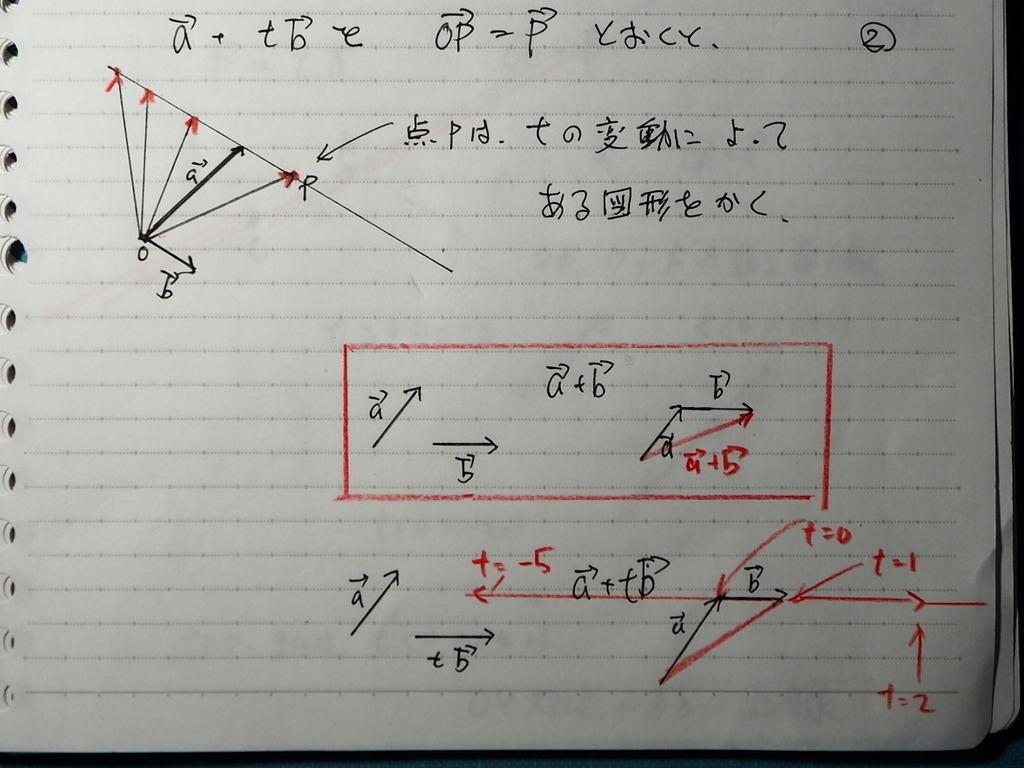 a⃗ + tb⃗ を OP⃗ = p⃗ とおくと、 ②
点Pは、tの変動によって
ある図形をかく、
a⃗
P
O
b⃗
a⃗+b⃗
a⃗
b⃗
b⃗
a⃗
a⃗+b⃗
t=0
t=-5
a⃗+tb⃗
b⃗
t=1
a⃗
a⃗
tb⃗
t=2